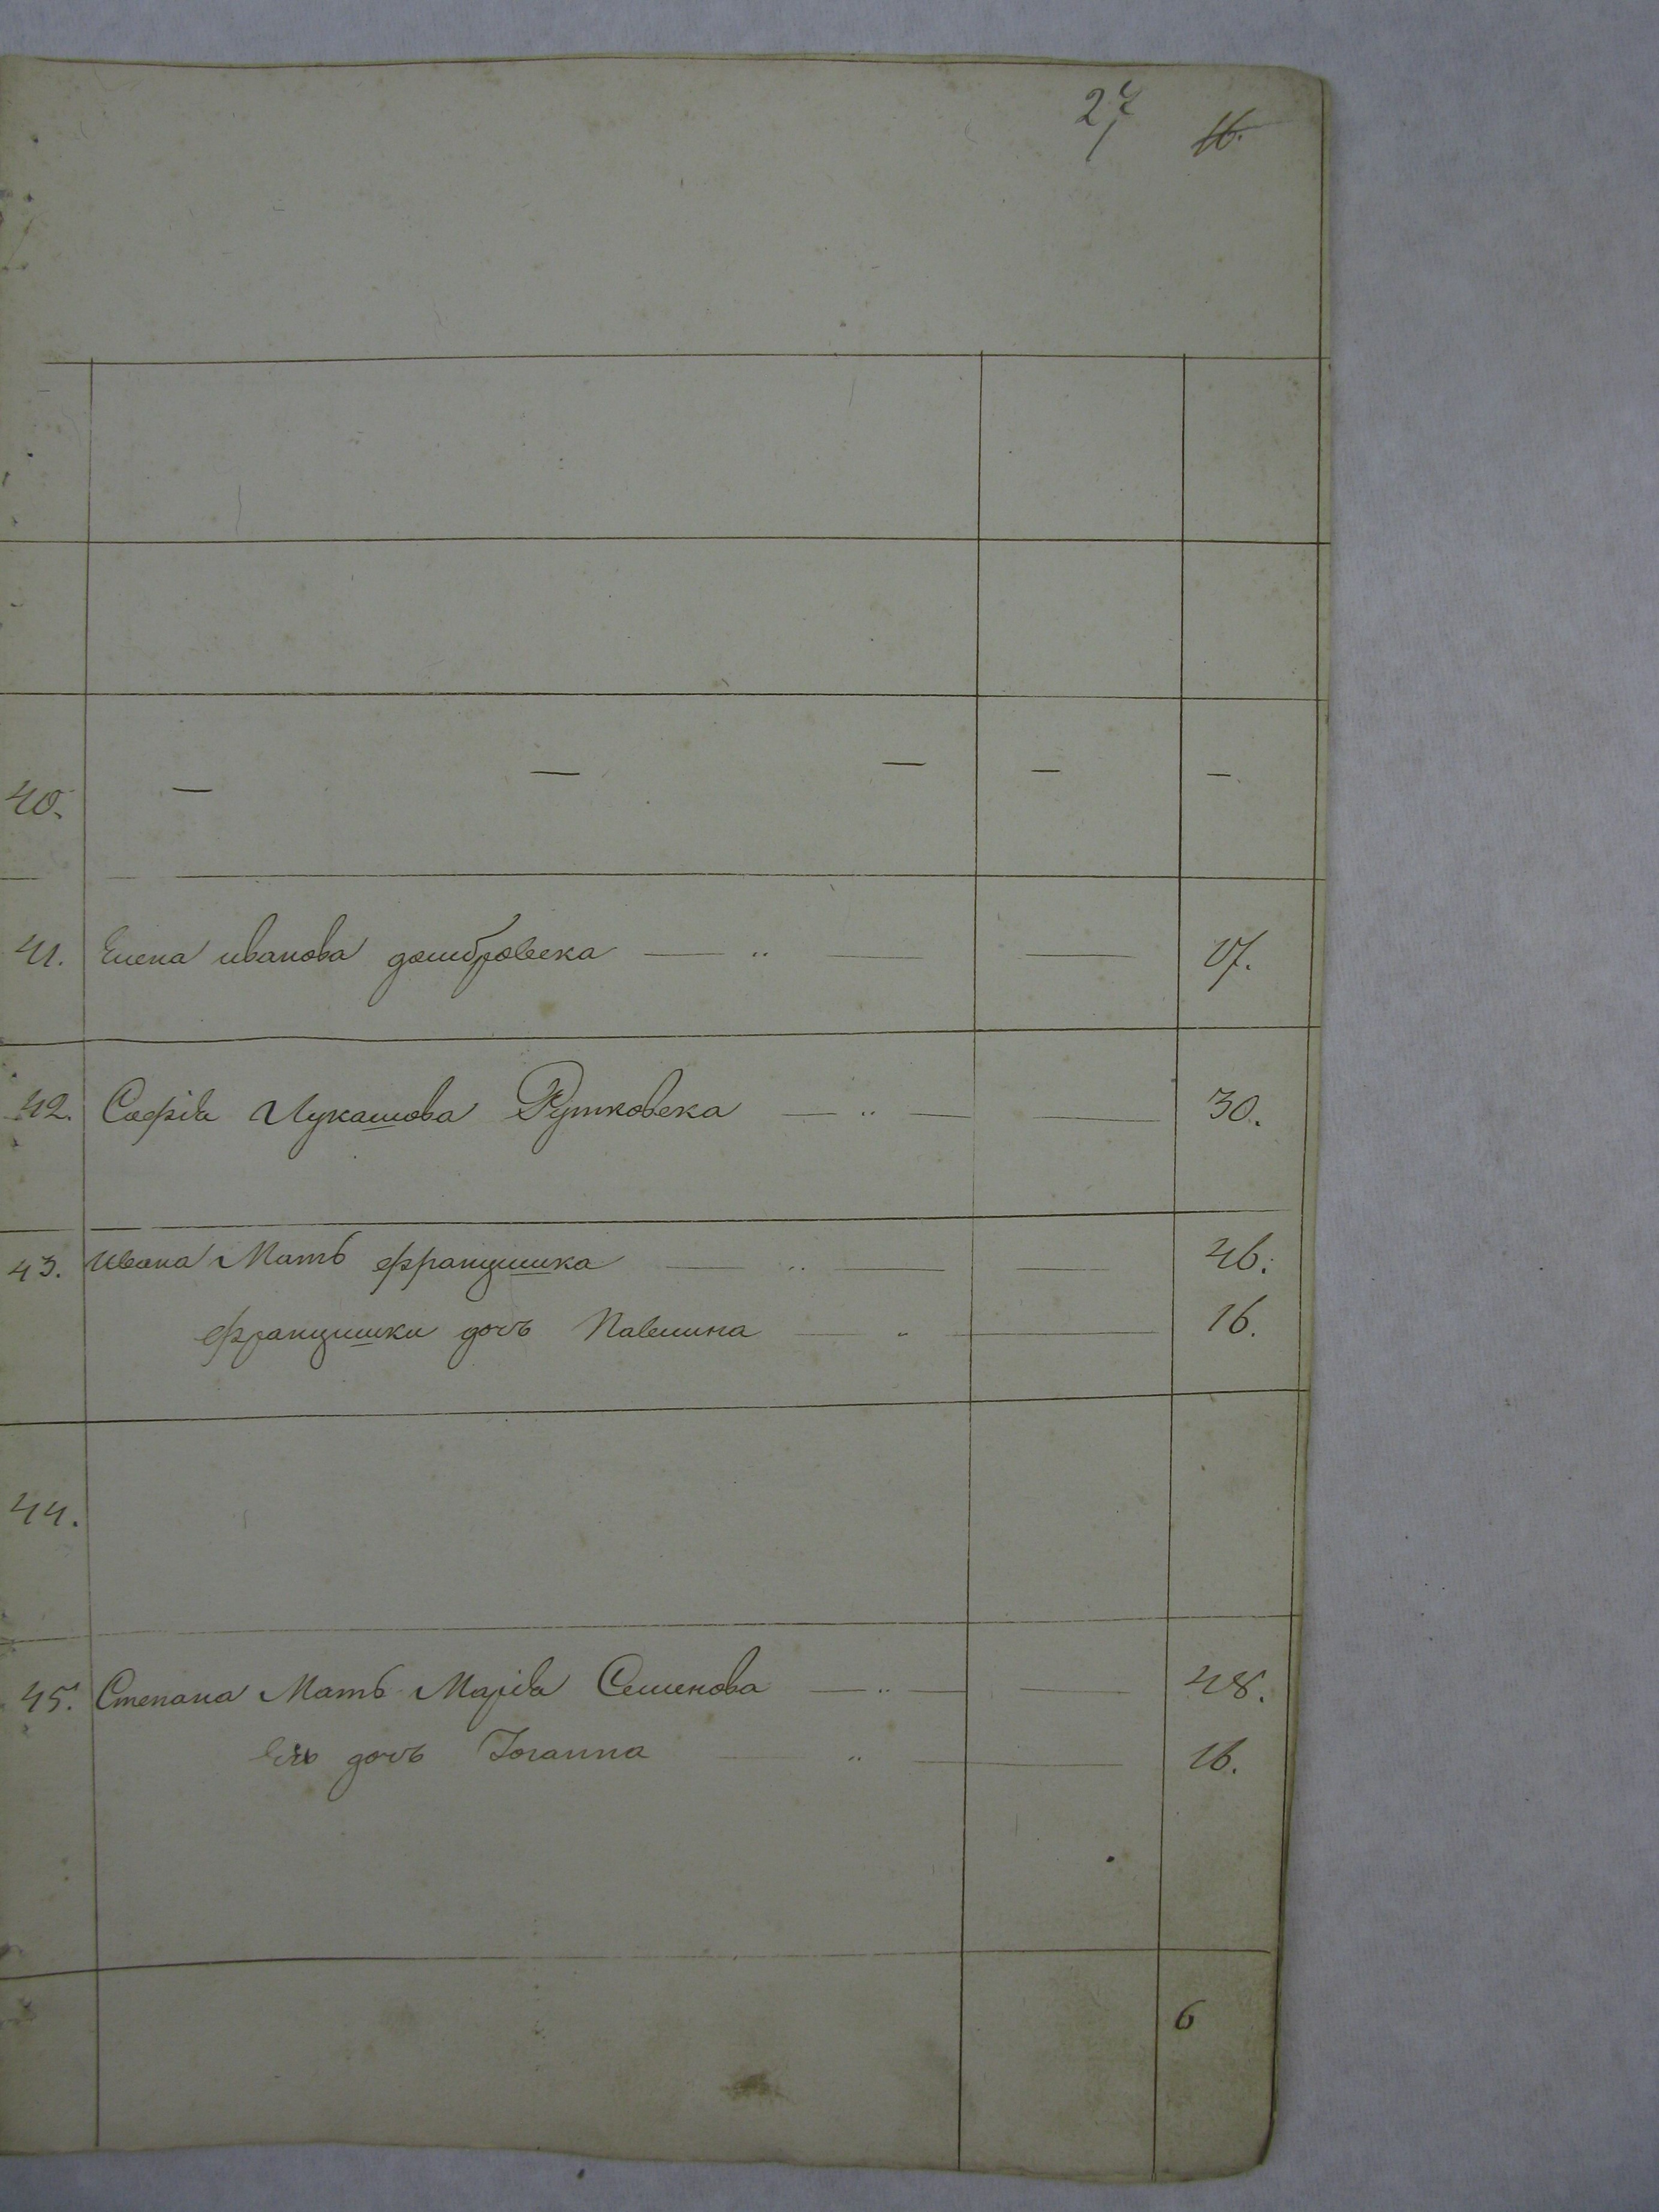 27 16.
40. — — — — —
41. Елена иванова домбровска — „ — — 17.
42. Софiя Лукашова Рутковска — „ — — 30.
43. Ивана Мать францишка — „ — — 46.
францишки дочь Павлина — „ — 16.
44.
45. Степана Мать Марiя Семенова — „ — — 48.
Ея дочь Iоганна — „ — 16.
6